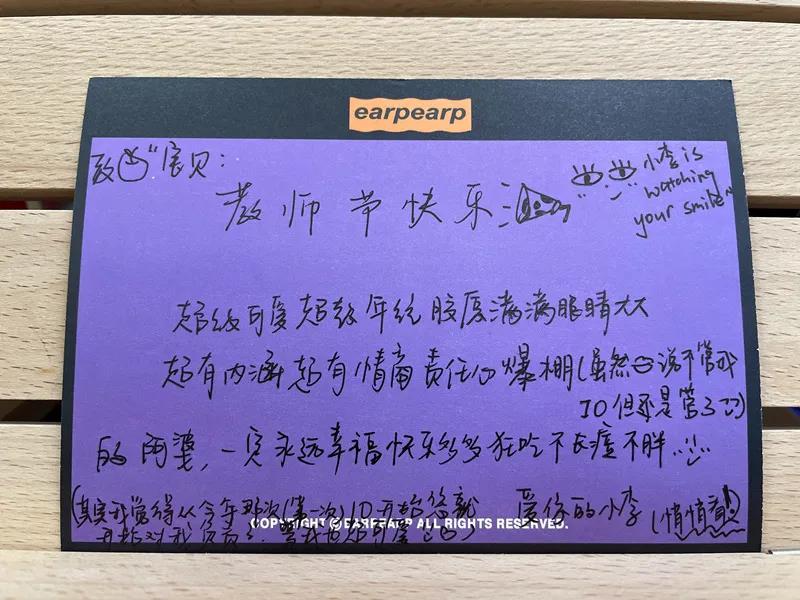 earpearp
致 宝贝:
教师节快乐
小李is
watching
your smile~
超级可爱超级年轻胶原满满眼睛大大
超有内涵超有情商责任心爆棚(虽然 说不管我
IO但还是管了
的 婆,一定永远幸福快乐多多狂吃不长痘不胖
(其实我觉得从今年那次(第一次)IO开始您就
爱你的小李(悄悄
COPYRIGHT @EARPEARP ALL RIGHTS RESERVED.
对我负责